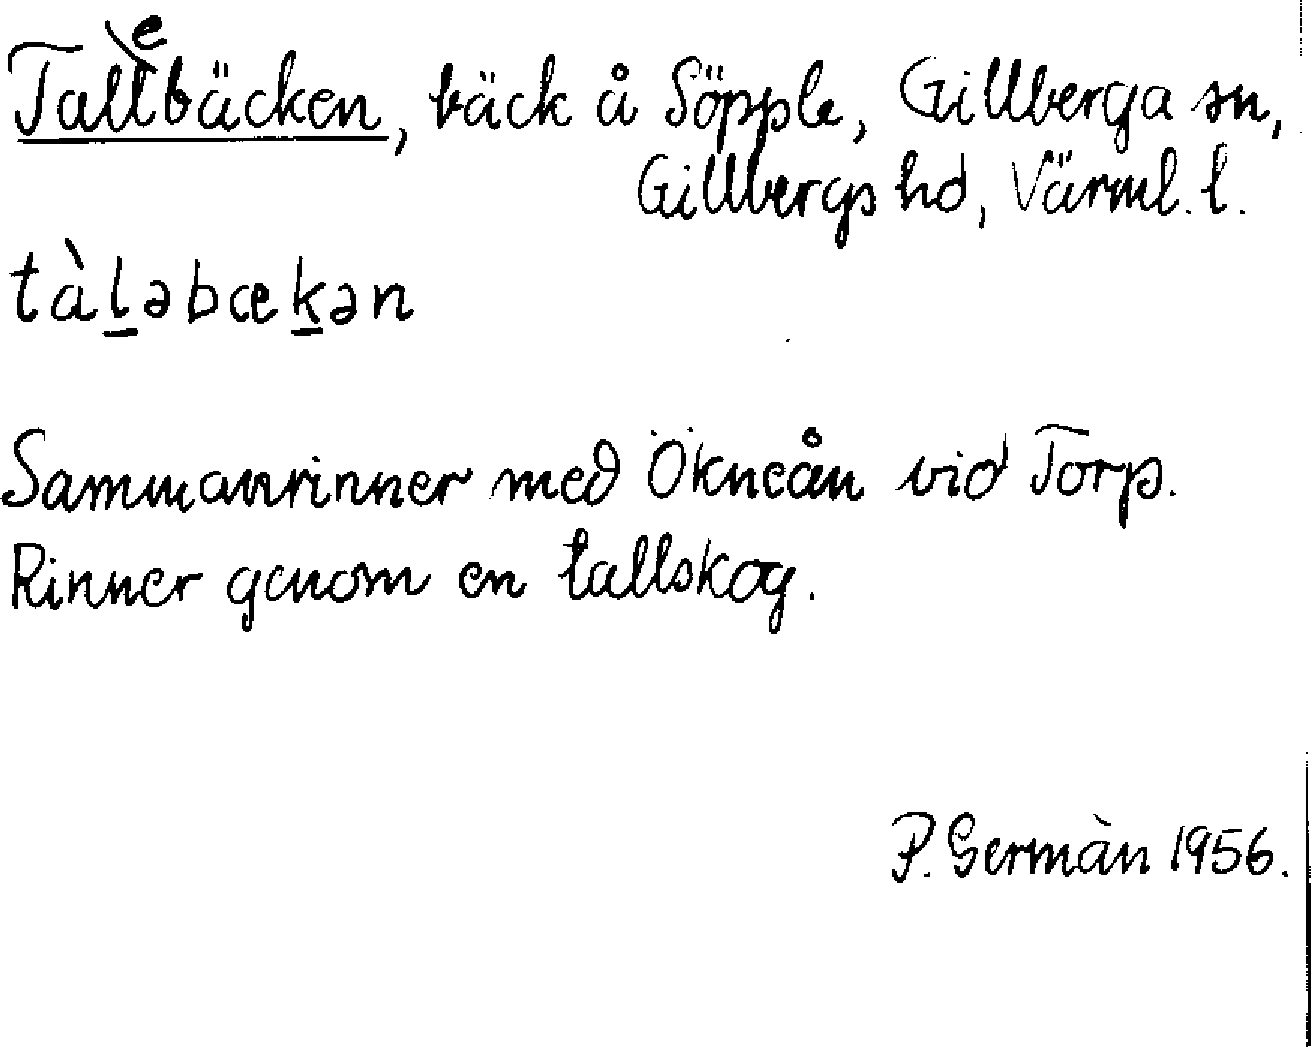 Tallebäcken, bäck å Söpple, Gillberga sn,
Gillbergs hd, Värml. l.
tàl̲əbœk̲ən
Sammanrinner med Ökneån vid Torp.
Rinner genom en tallskog.
P. Germàn 1956.